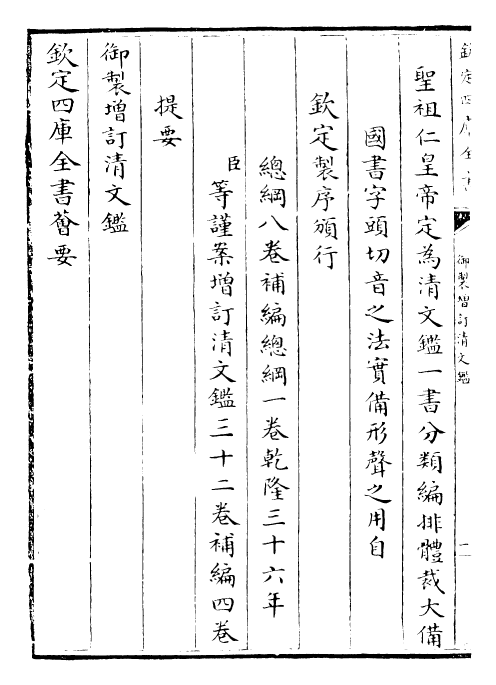 欽定四庫全書薈要
御製增訂清文鑑
提要
臣等謹案增訂清文鑑三十二卷補編四卷
總綱八卷補編總綱一卷乾隆三十六年
欽定製序頒行
國書字頭切音之法實備形聲之用自
聖祖仁皇帝定為清文鑑一書分類編排體裁大備
欽定四庫全書
御製增訂清文鑑